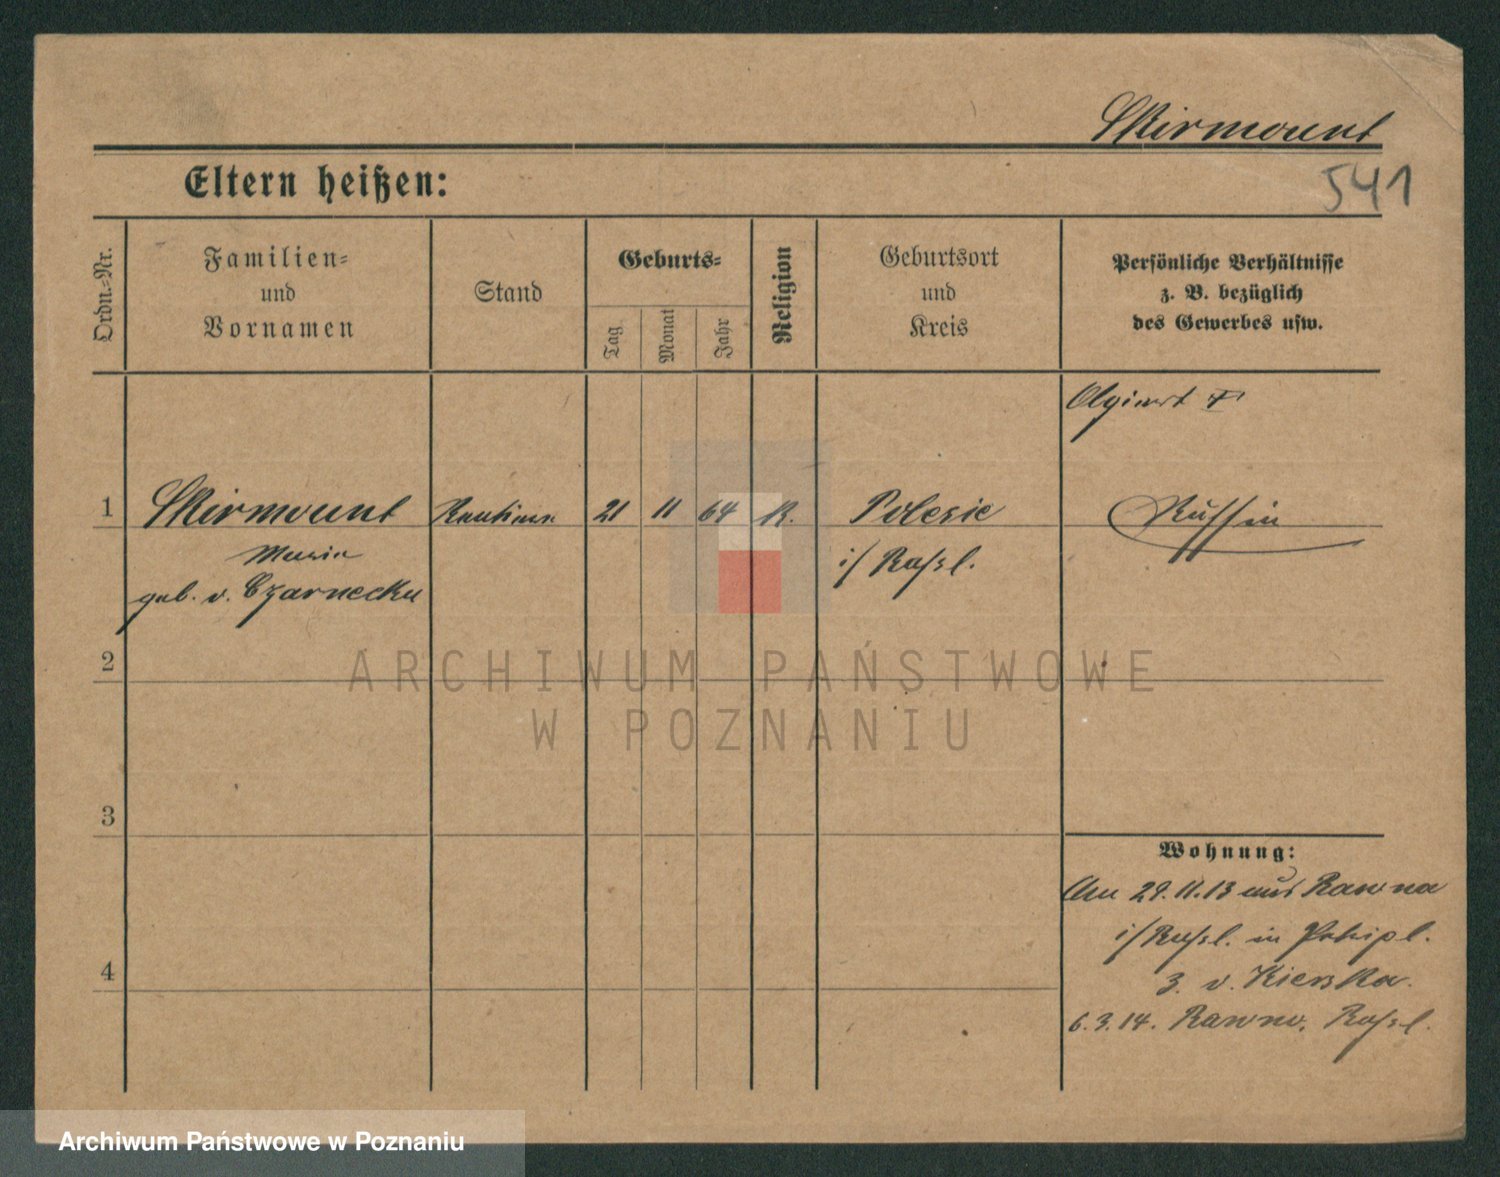 Skirmount
541
Eltern heißen:
Ordn.-Nr.
Familien-
und
Vornamen
Stand
Geburts-
Tag
Monat
Jahr
Religion
Geburtsort
und
Kreis
Persönliche Verhältnisse
z. B. bezüglich
des Gewerbes usw.
Olgiert †
1 Skirmount 21 11 64 K. Polesie Russin
Maria i/Rußl.
geb. v. Czarnecka
2
3
4
Wohnung:
Am 29.11.13 aus Rawna
i/Rußl. in
3. v. Kierska.
6.3.14. Rußl.
ARCHIWUM PAŃSTWOWE
W POZNANIU
Archiwum Państwowe w Poznaniu